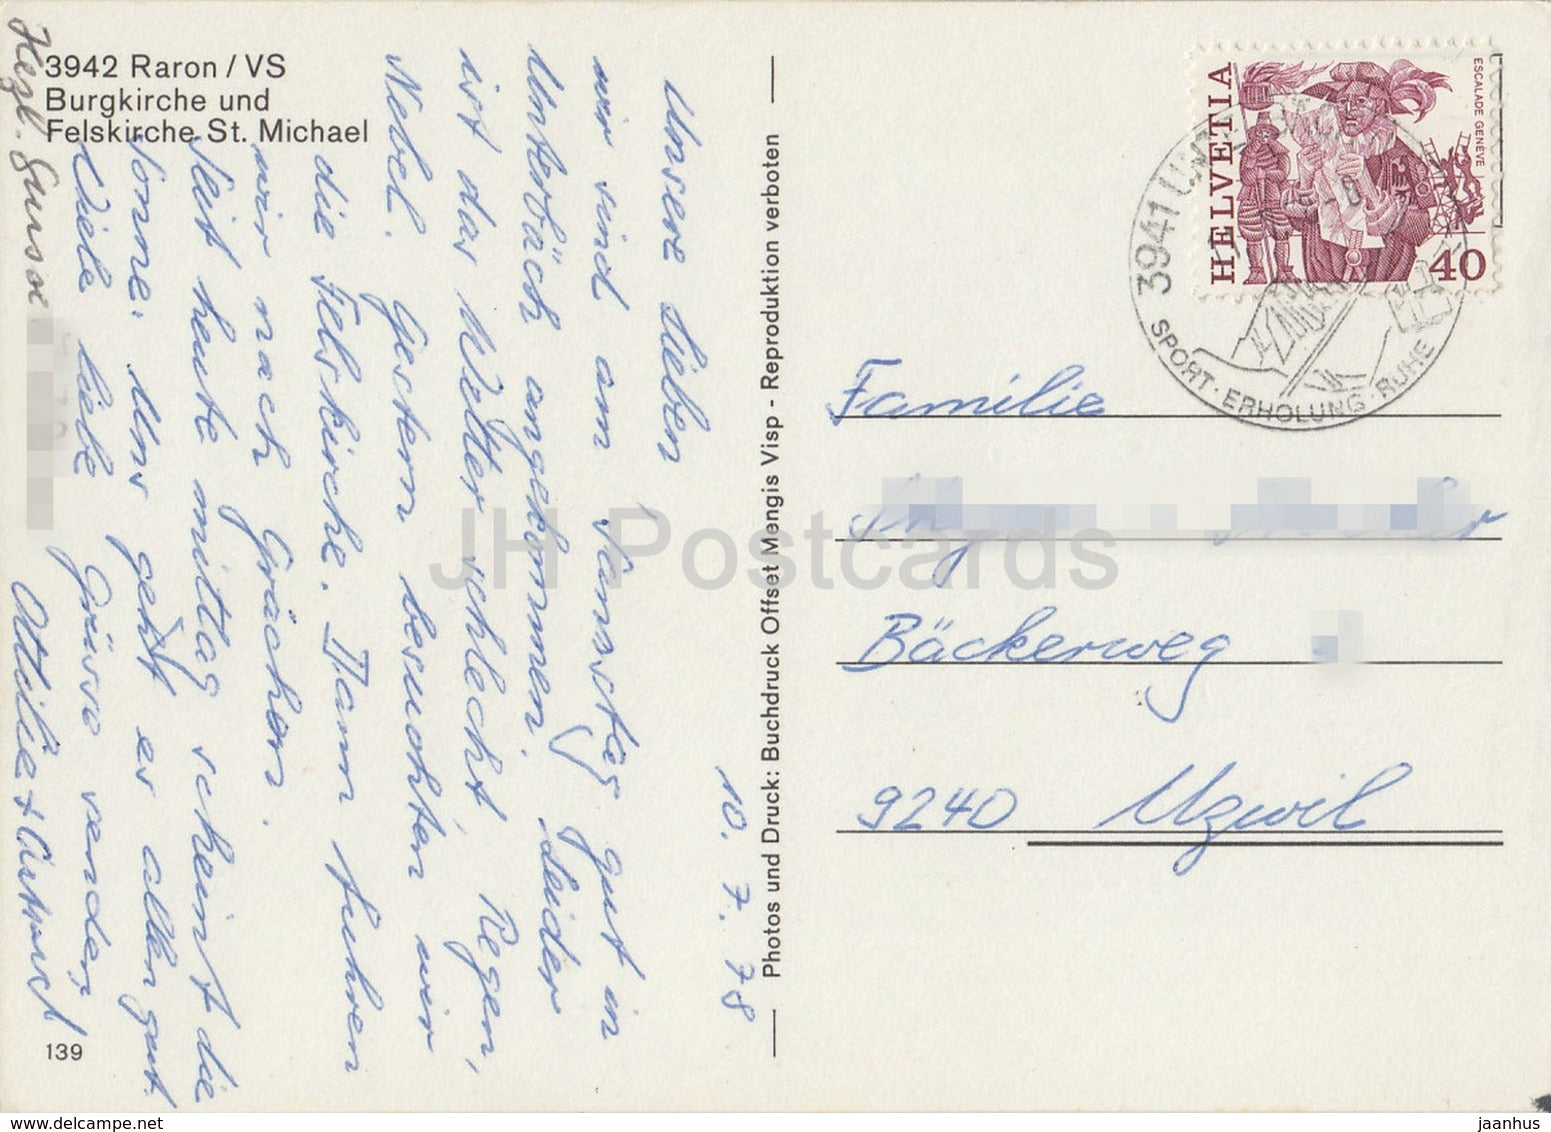 3942 Raron / VS
Burgkirche und
Felskirche St. Michael
10. 7. 78
Unsere Lieben
wir sind am Samstag gut in
Unterbäch angekommen. Leider
ist das Wetter schlecht, Regen,
Nebel. Gestern besuchten wir
die Felskirche. Dann fuhren
wir nach Grächen.
Seit heute mittag scheint die
Sonne. Uns geht es allen gut.
Viele liebe Grüsse senden
Ottilie +
Herzl. Grüsse
139
Photos und Druck: Buchdruck Offset Mengis Visp - Reproduktion verboten
HELVETIA
ESCALADE GENÈVE
40
3941
SPORT · ERHOLUNG · RUHE
Familie
Bäckerweg
9240 Uzwil
JH Postcards
www.delcampe.net
jaanhus